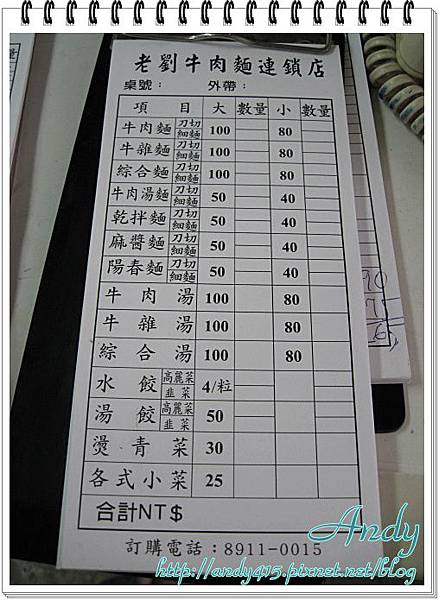 老劉牛肉麵連鎖店
桌號： 外帶：
項 目 大 數量 小 數量
牛肉麵 刀切 細麵 100 80
牛雜麵 刀切 細麵 100 80
綜合麵 刀切 細麵 100 80
牛肉湯麵 刀切 細麵 50 40
乾拌麵 刀切 細麵 50 40
麻醬麵 刀切 細麵 50 40
陽春麵 刀切 細麵 50 40
牛 肉 湯 100 80
牛 雜 湯 100 80
綜 合 湯 100 80
水 餃 高麗菜 韭菜 4/粒
湯 餃 高麗菜 韭菜 50
燙 青 菜 30
各式小菜 25
合計NT$
訂購電話：8911-0015
Andy
http://andy915.pixnet.net/blog